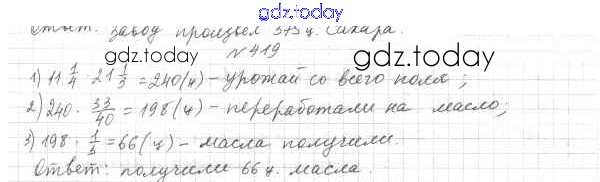 gdz.today
Ответ: завод произвел 375 ц. сахара.
gdz.today № 419 gdz.today
1) 11 1/4 · 21 1/3 = 240 (ц) – урожай со всего поля;
2) 240 · 33/40 = 198 (ц) – переработали на масло;
3) 198 · 1/3 = 66 (ц) – масла получили.
Ответ: получили 66 ц. масла.
gdz.today gdz.today